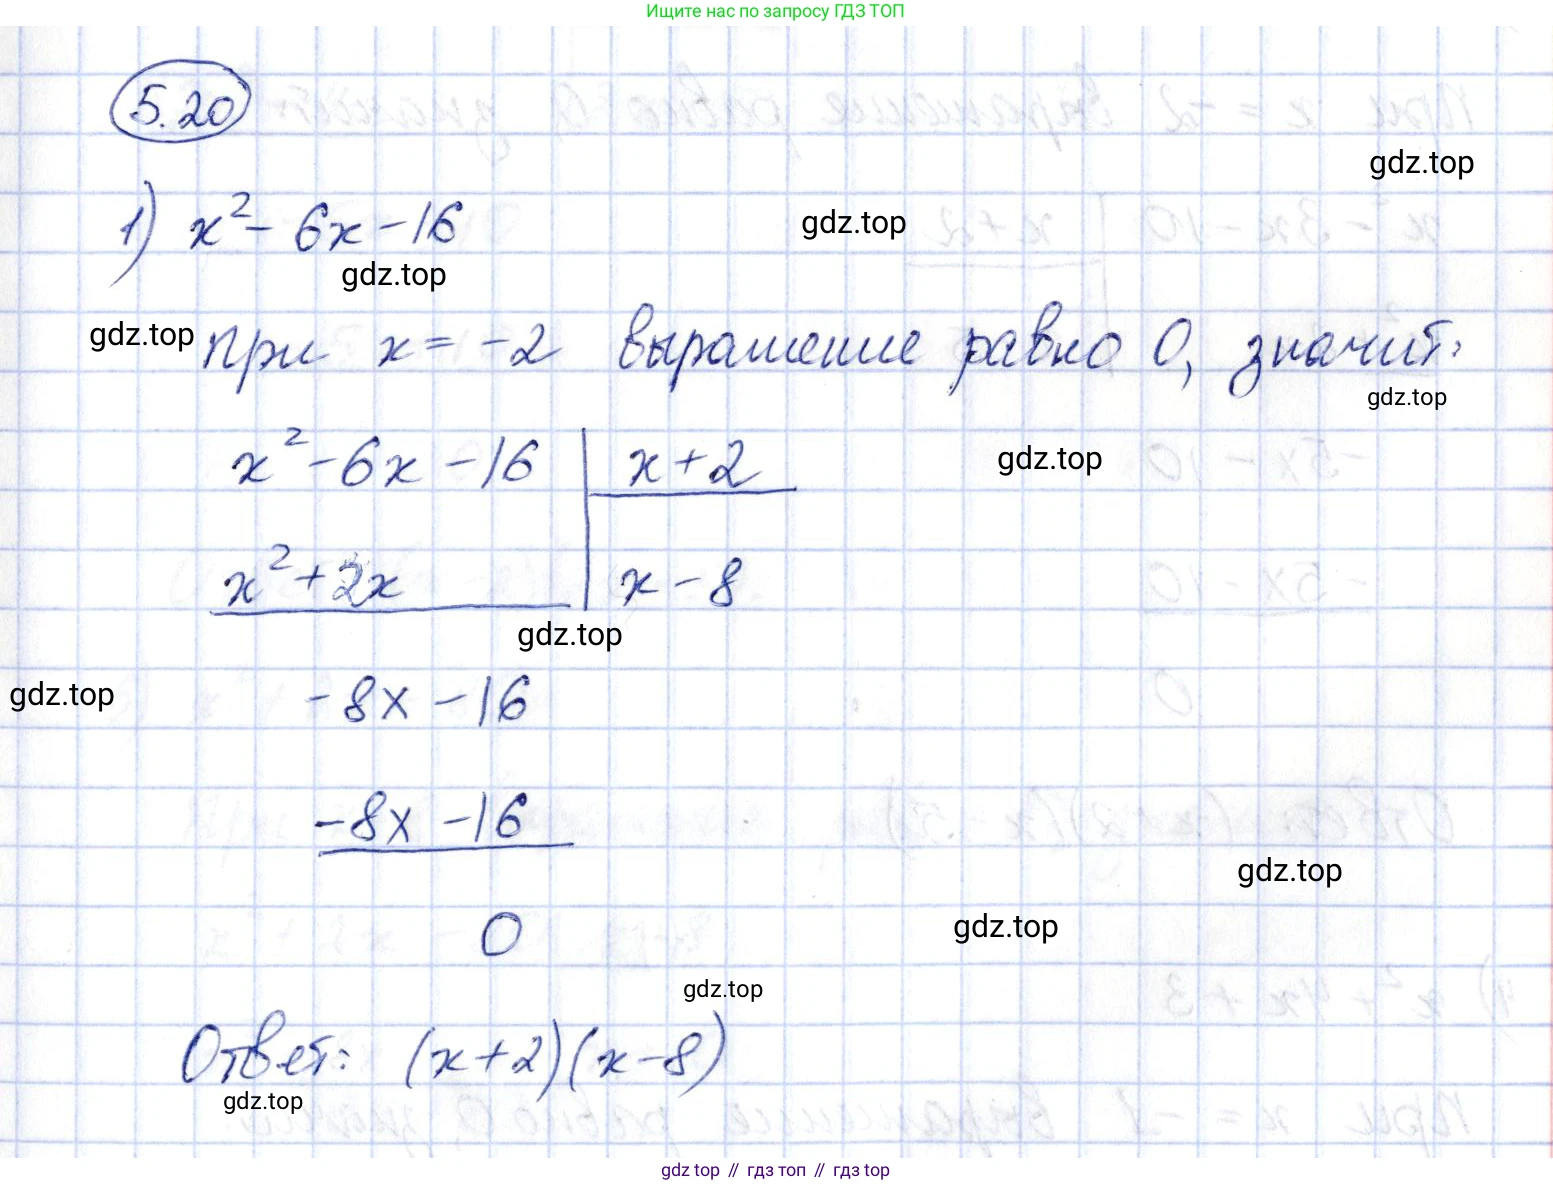 Ищите нас по запросу ГДЗ ТОП
5.20
gdz.top
1) x² - 6x - 16
gdz.top
gdz.top
gdz.top
при x = -2 выражение равно 0, значит:
gdz.top
x² - 6x - 16 | x + 2
gdz.top
x² + 2x | x - 8
gdz.top
-8x - 16
gdz.top
-8x - 16
gdz.top
0
gdz.top
gdz.top
Ответ: (x+2)(x-8)
gdz.top
gdz top // гдз топ // гдз top